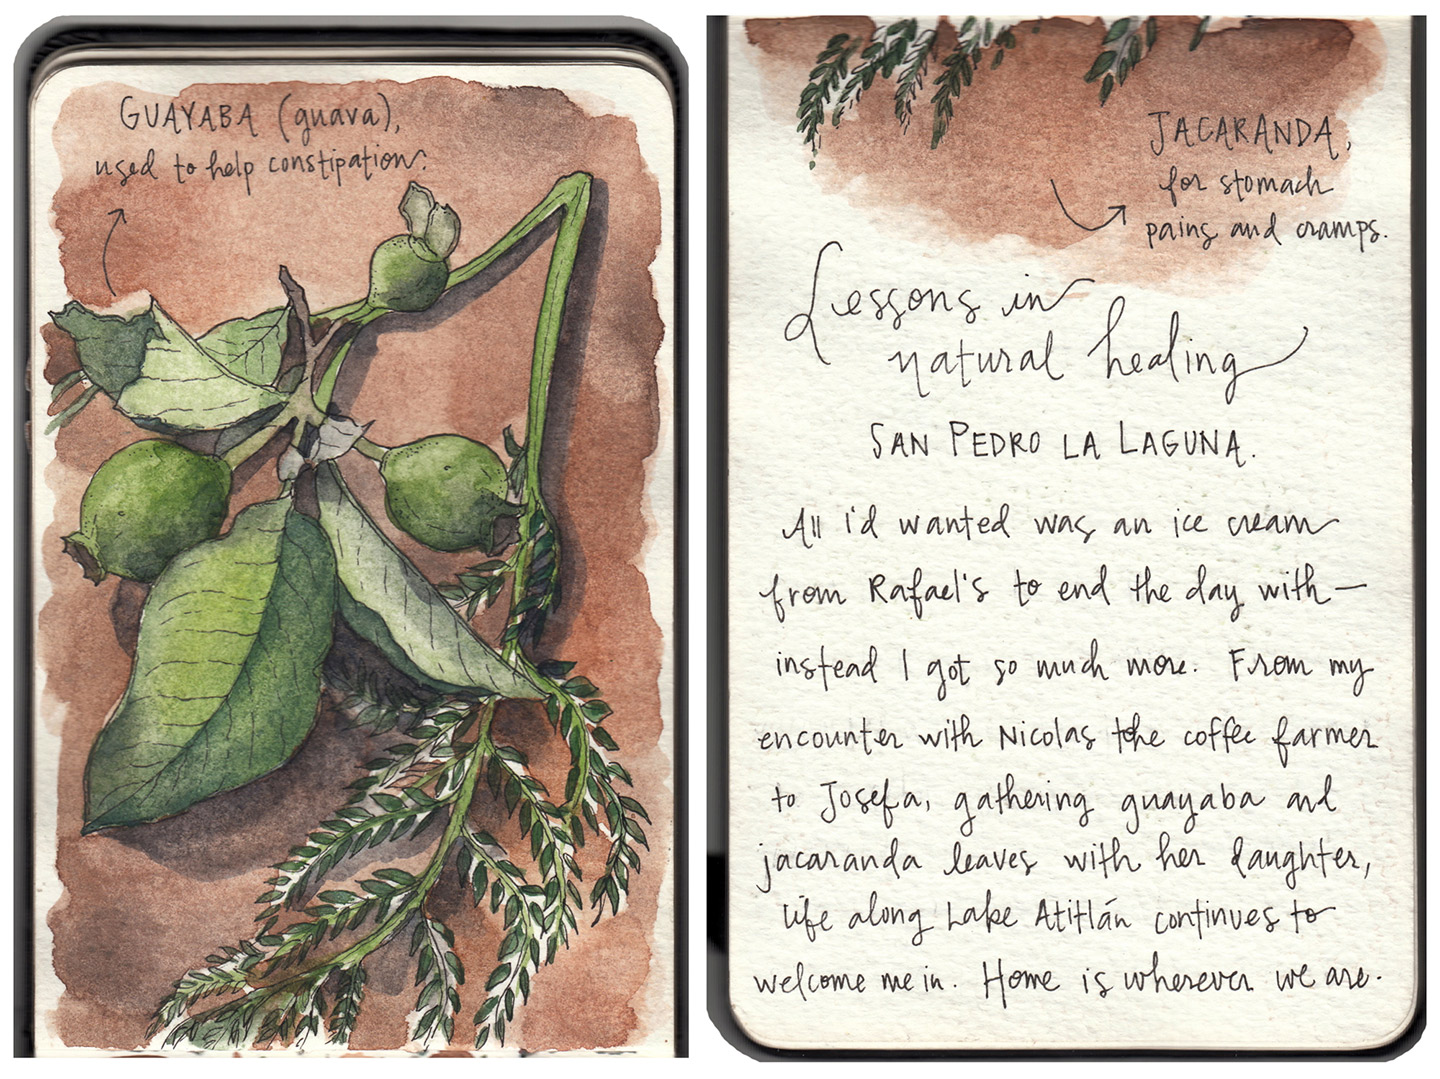 GUAYABA (guava),
used to help constipation.
JACARANDA,
for stomach
pains and cramps.
Lessons in
natural healing
SAN PEDRO LA LAGUNA.
All i'd wanted was an ice cream
from Rafael's to end the day with—
instead I got so much more. From my
encounter with Nicolas the coffee farmer
to Josefa, gathering guayaba and
jacaranda leaves with her daughter,
life along Lake Atitlán continues to
welcome me in. Home is wherever we are.